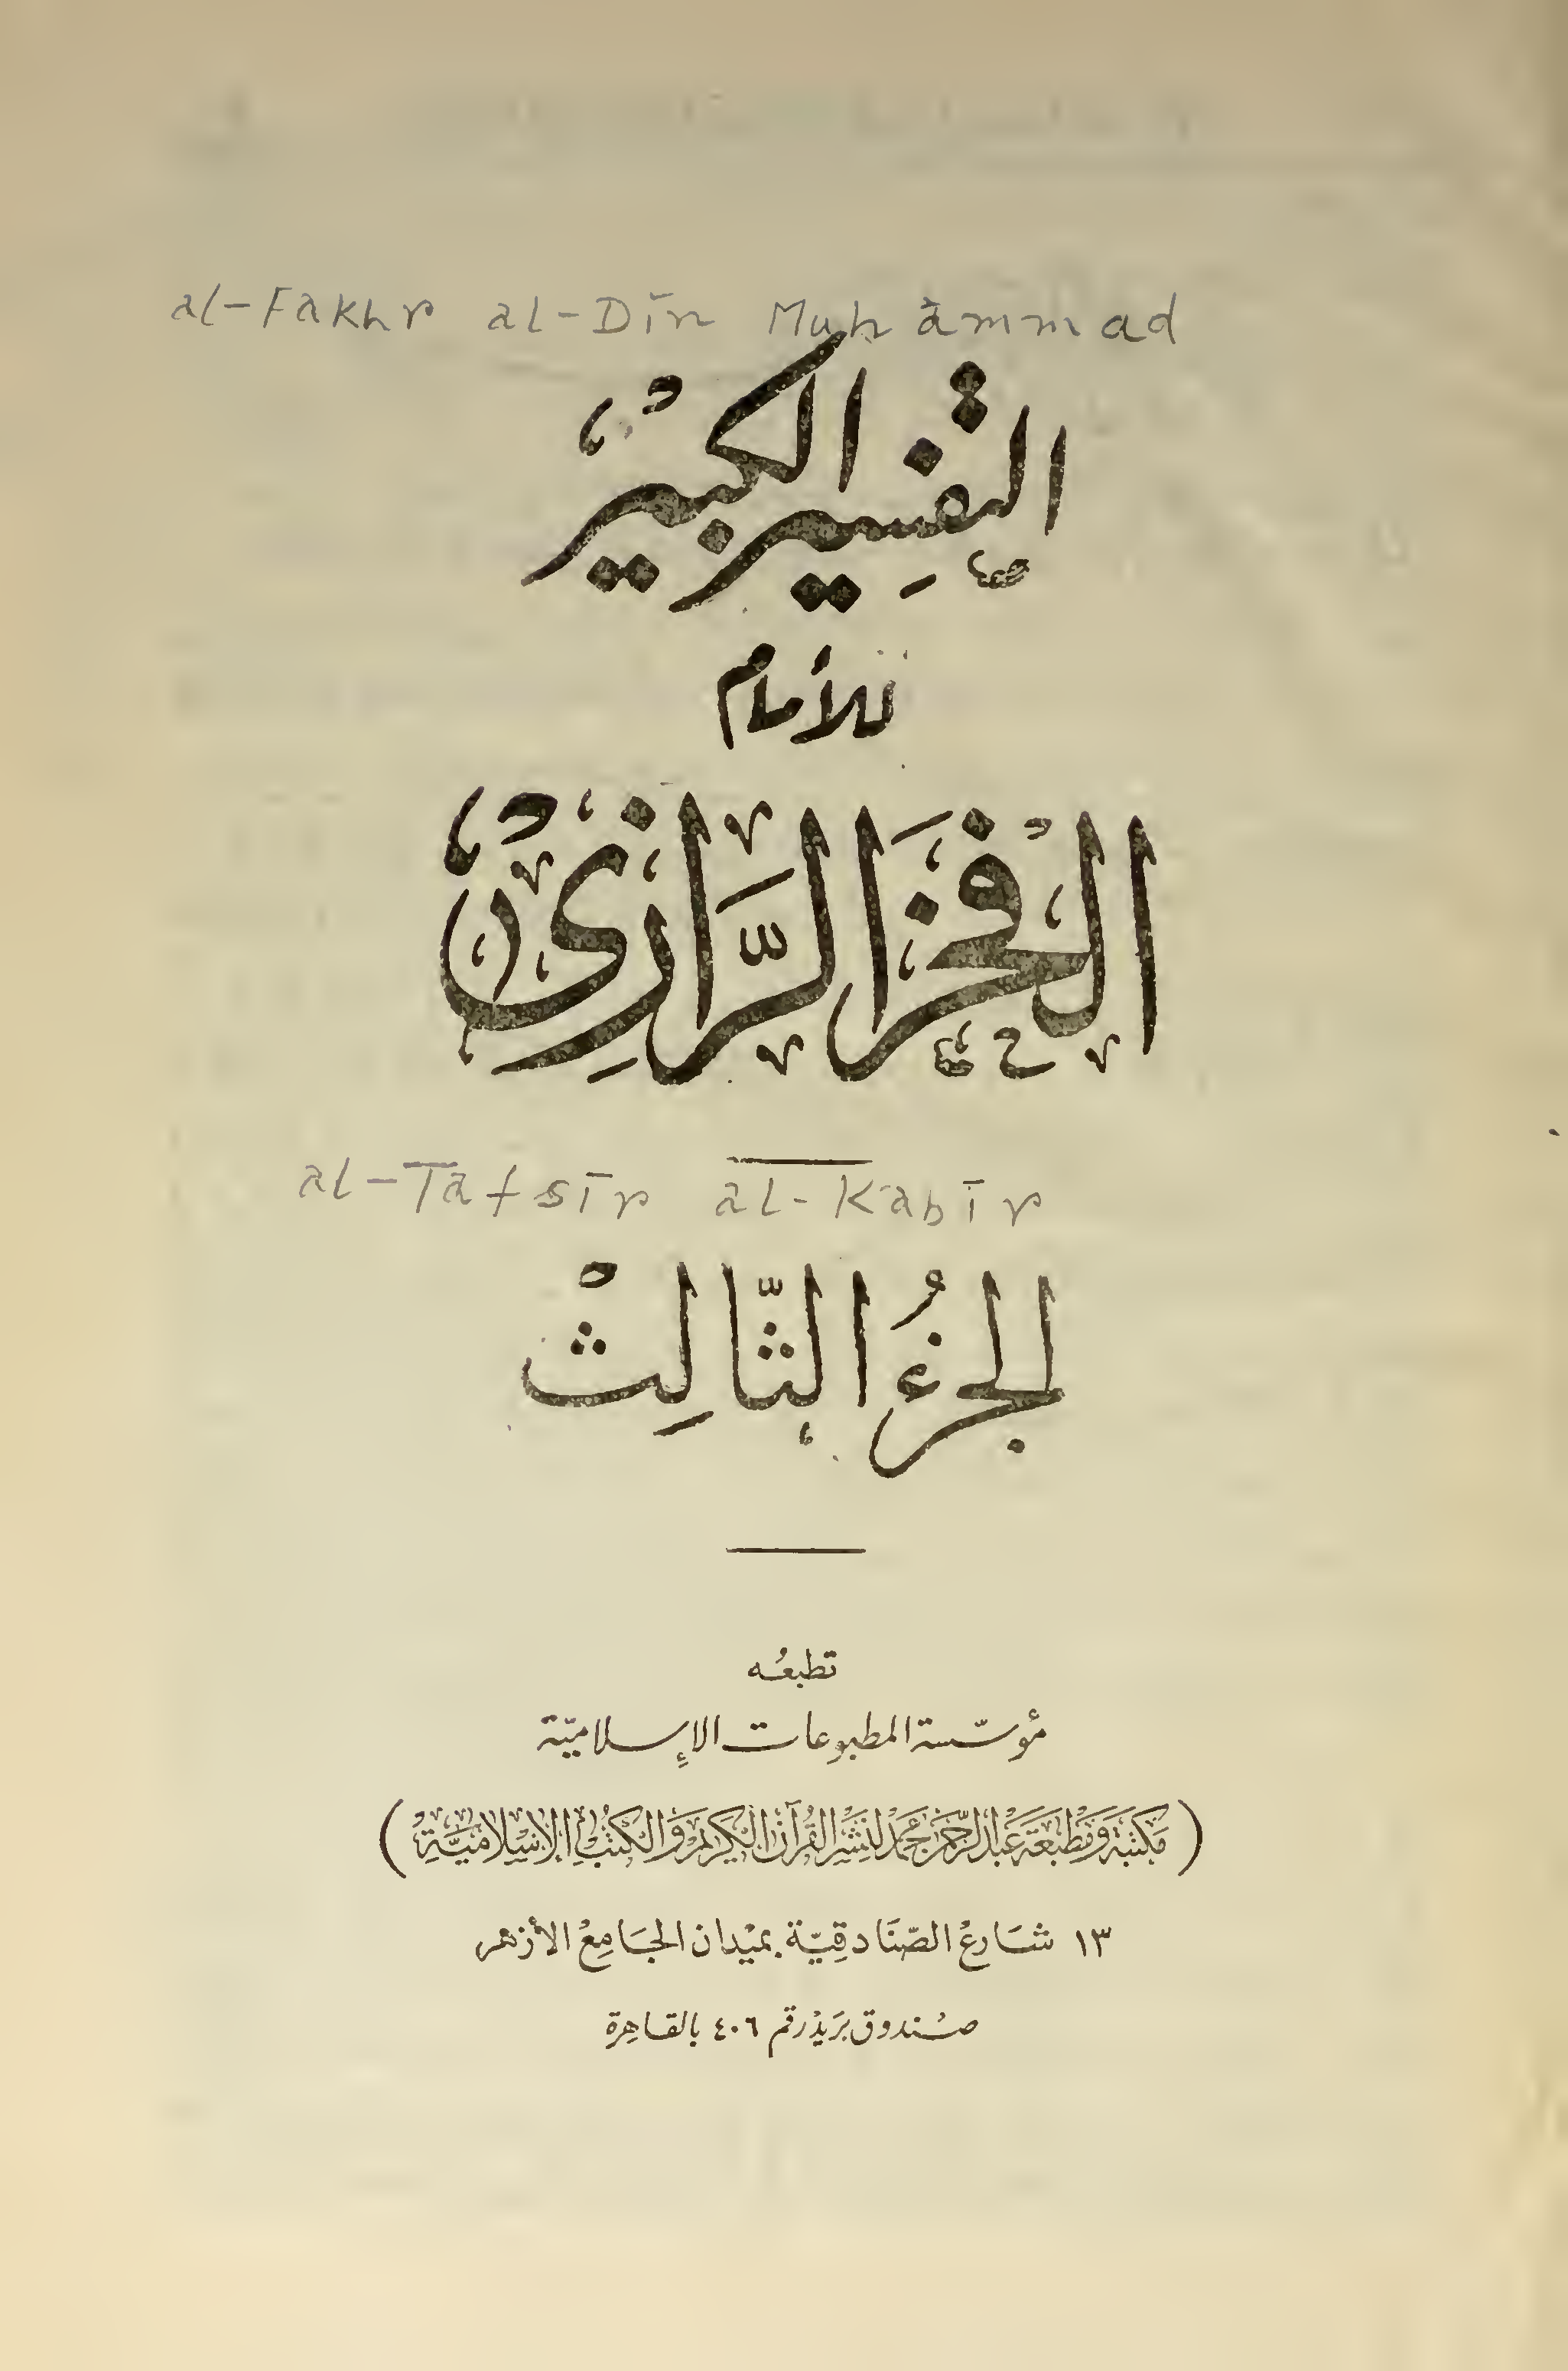 al-Fakhr al-Dīn Muhammad
التفسير الكبير
للأمام
الفخر الرازي
al-Tafsīr al-Kabīr
الجزء الثالث
تطبعه
مؤسسة المطبوعات الإسلامية
(مكتبة ومطبعة عبد الرحمن محمد لنشر القرآن الكريم والكتب الإسلامية)
١٣ شارع الصنادقية بميدان الجامع الأزهر
صندوق بريد رقم ٤٠٦ بالقاهرة